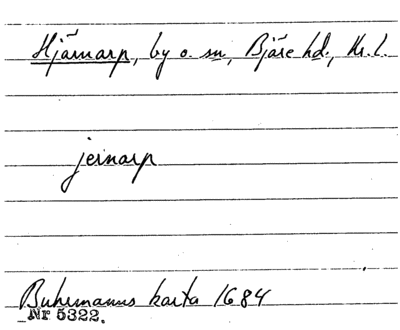 Hjärnarp, by o. sn, Bjäre hd., Kr. l.
jeinarp
Buhrmanns karta 1684
Nr 5322.